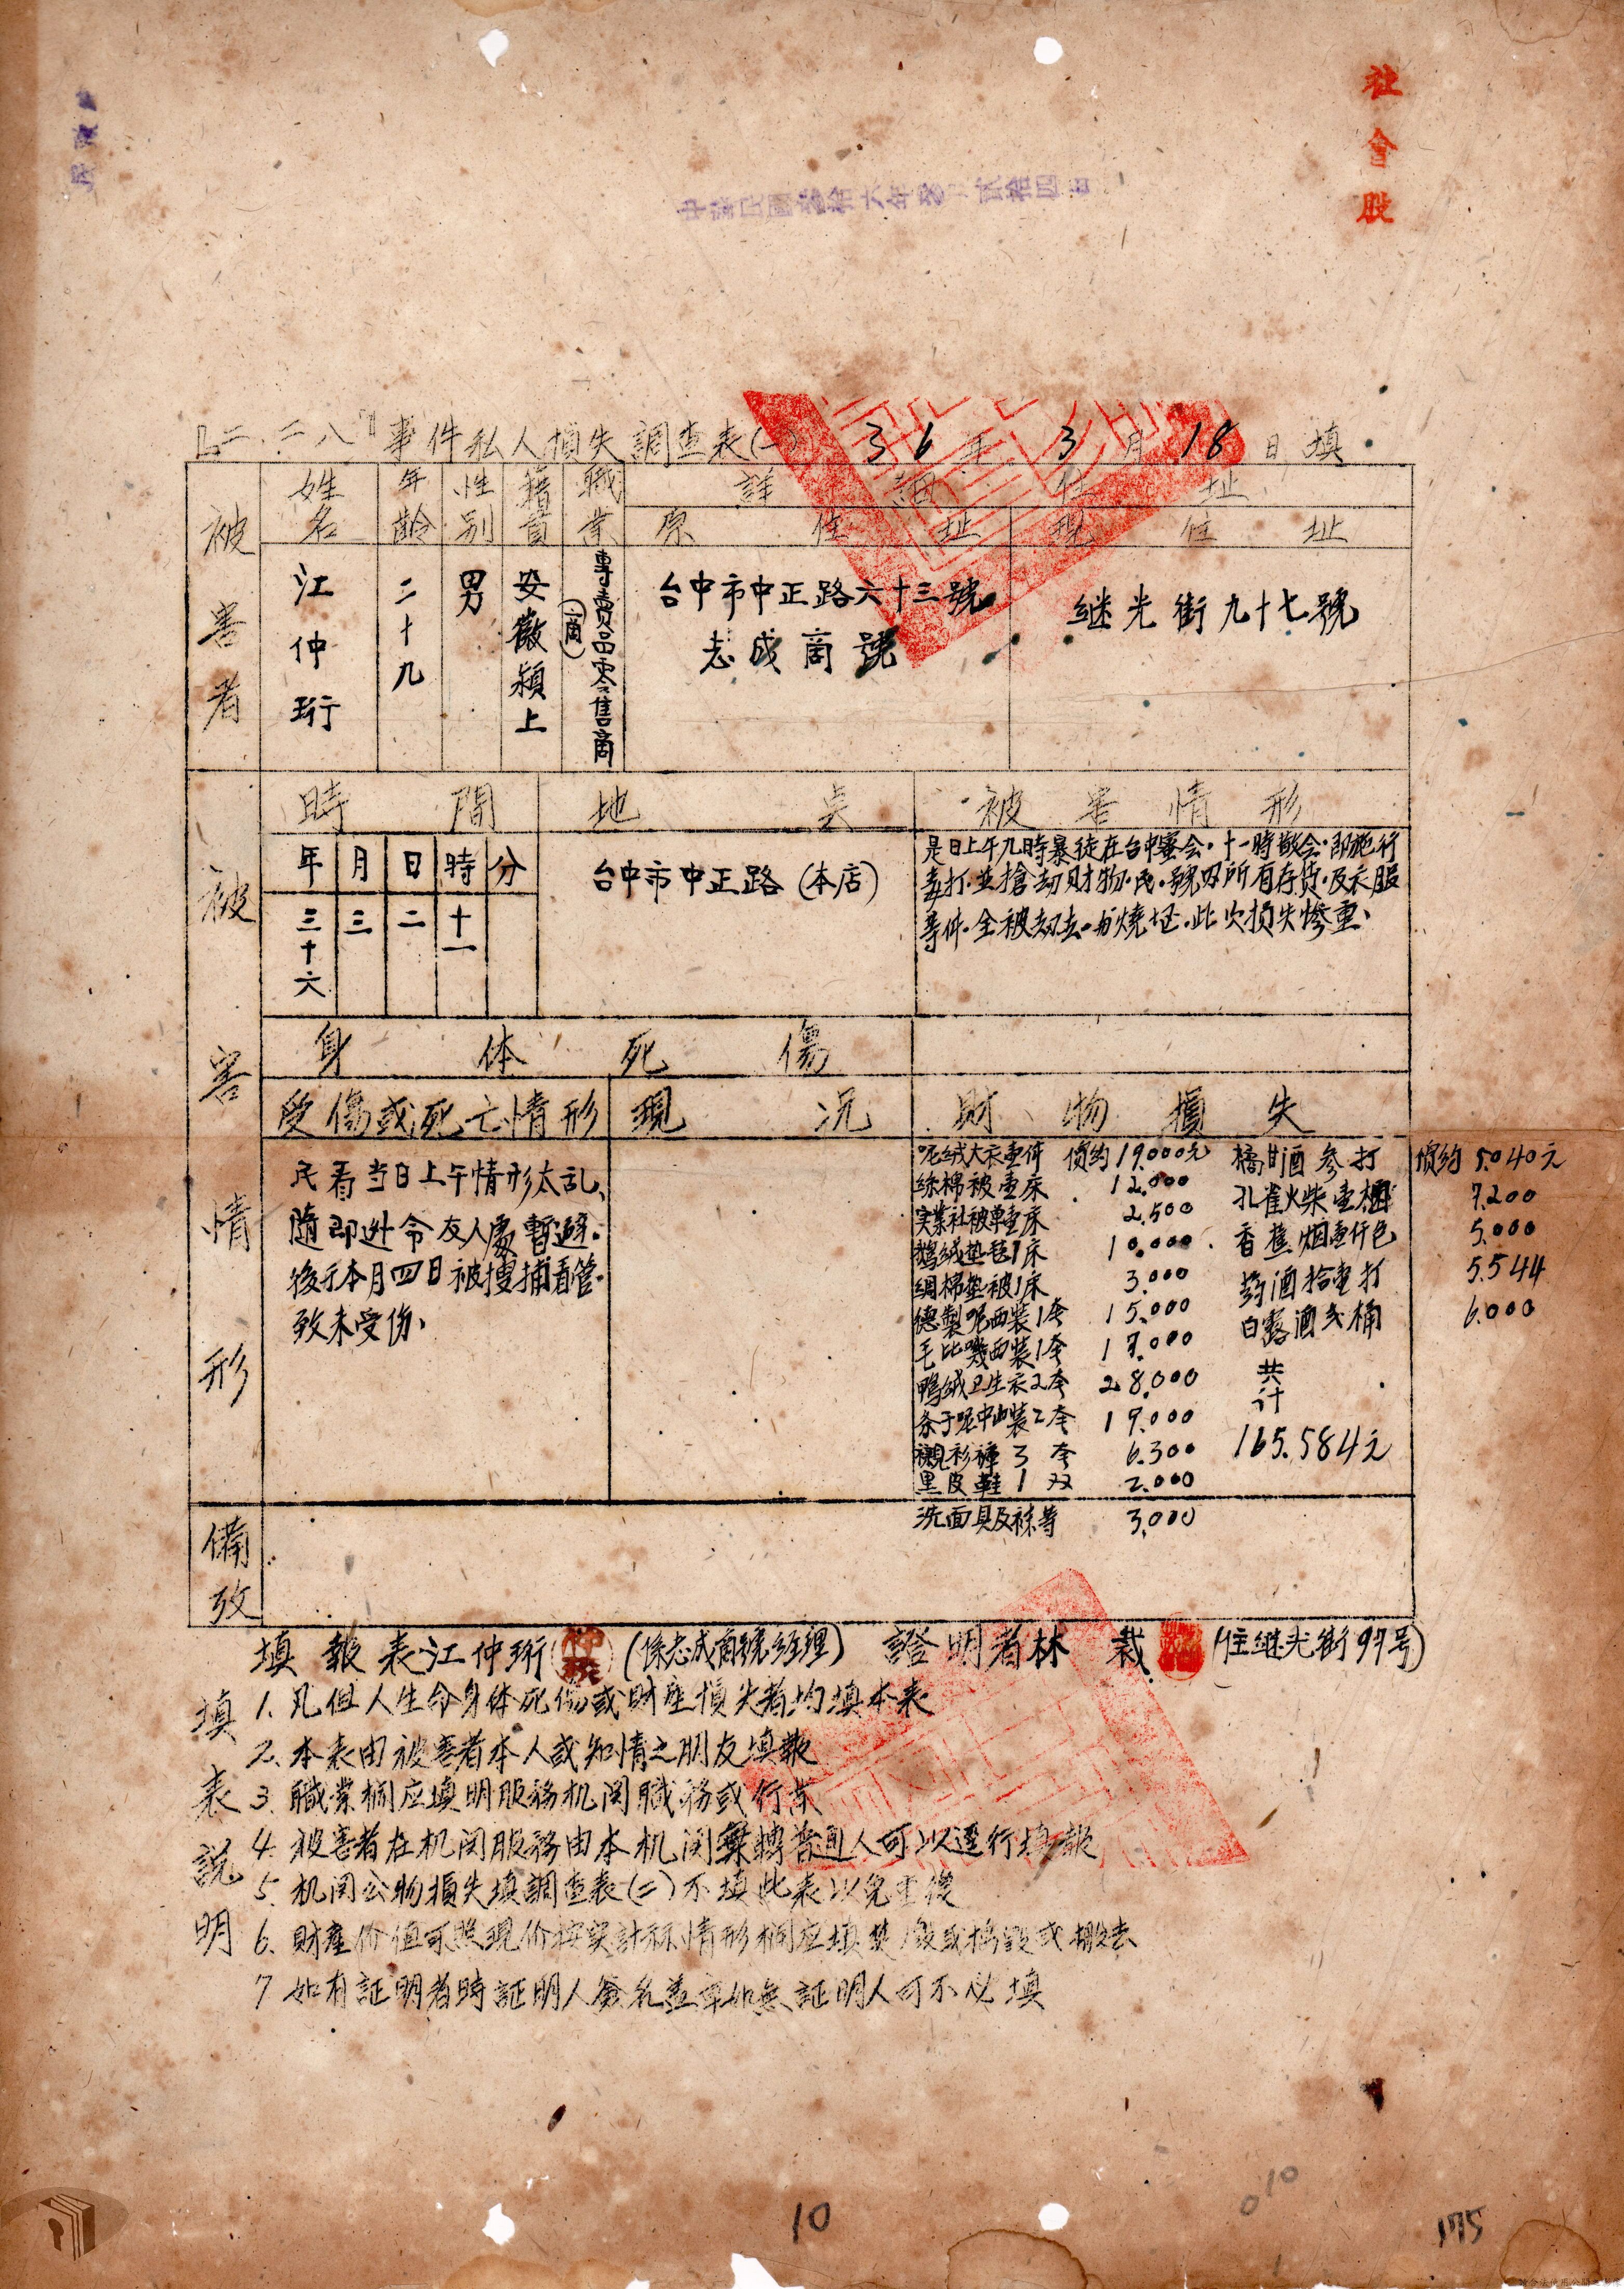 社會股
「二.二八」事件私人損失調查表(一) 36年3月18日填
被害者
姓名 年齡 性別 籍貫 職業 詳細住址
原住址 現住址
江仲珩
二十九
男
安徽潁上
專賣品零售商
(商)
台中市中正路六十三號
志成商號
继光街九十七號
被害情形
時間 地點 被害情形
年 月 日 時 分
三十六 三 二 十一
台中市中正路(本店)
是日上午九時暴徒在台中開会.十一時散会.即施行
毒打.並搶劫財物.民.號內所有存货.及衣服
等件.全被劫去.与燒坯.此次损失惨重、
身体死傷
受傷或死亡情形 現況 財物損失
民看当日上午情形太乱、
隨即逃令友人處暫避.
後于本月四日被搜捕看管.
致未受伤、
呢绒大衣壹件 價約19.000元
絲棉被壹床 12.000
実業社被單壹床 2.500
鵝绒垫毯1床 10.000
綢棉垫被1床 3.000
德製呢西装1套 15.000
毛比嘰西装1套 17.000
鴨绒卫生衣2套 28.000
条子呢中山装2套 19.000
襯衫褲3套 6.300
黑皮鞋1双 2.000
洗面具及襪等 3,000
橘甘酒参打 價約5.040元
孔雀火柴壹梱 7.200
香蕉烟壹仟包 5.000
葯酒拾壹打 5.544
白露酒弍桶 6.000
共计
165.584元
備攷
填報表江仲珩 (係志成商號經理) 證明者林裁 (住继光街97号)
填表説明
1. 凡個人生命身体死傷或財產損失者均填本表
2. 本表由被害者本人或知情之朋友填報
3. 職業欄应填明服務机関職務或行業
4. 被害者在机関服務由本机関彙轉普通人可以逕行填報
5. 机関公物損失填調查表(二)不填此表以免重複
6. 財產价值可照現价按実計祘情形欄应填焚燬或搗毀或搬去
7 如有証明者時証明人簽名蓋章如無証明人可不必填
10
010
175